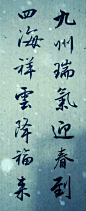 九州瑞氣迎春到
四海祥雲降福來